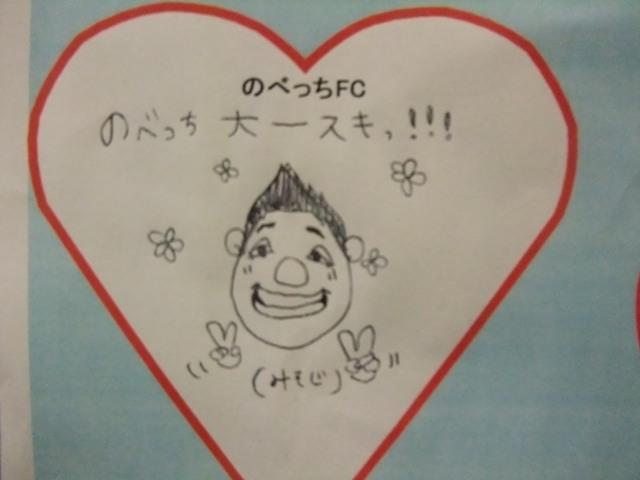 のべっちFC
のべっち 大ースキっ!!!
(みそじ)